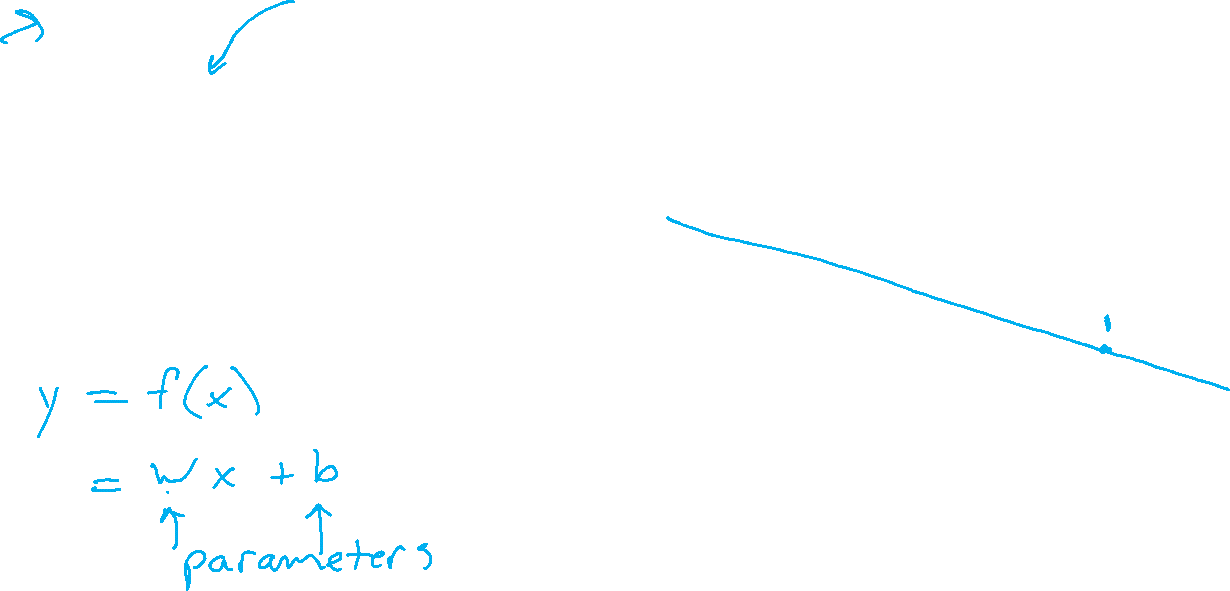 y = f(x)
= wx + b
parameters